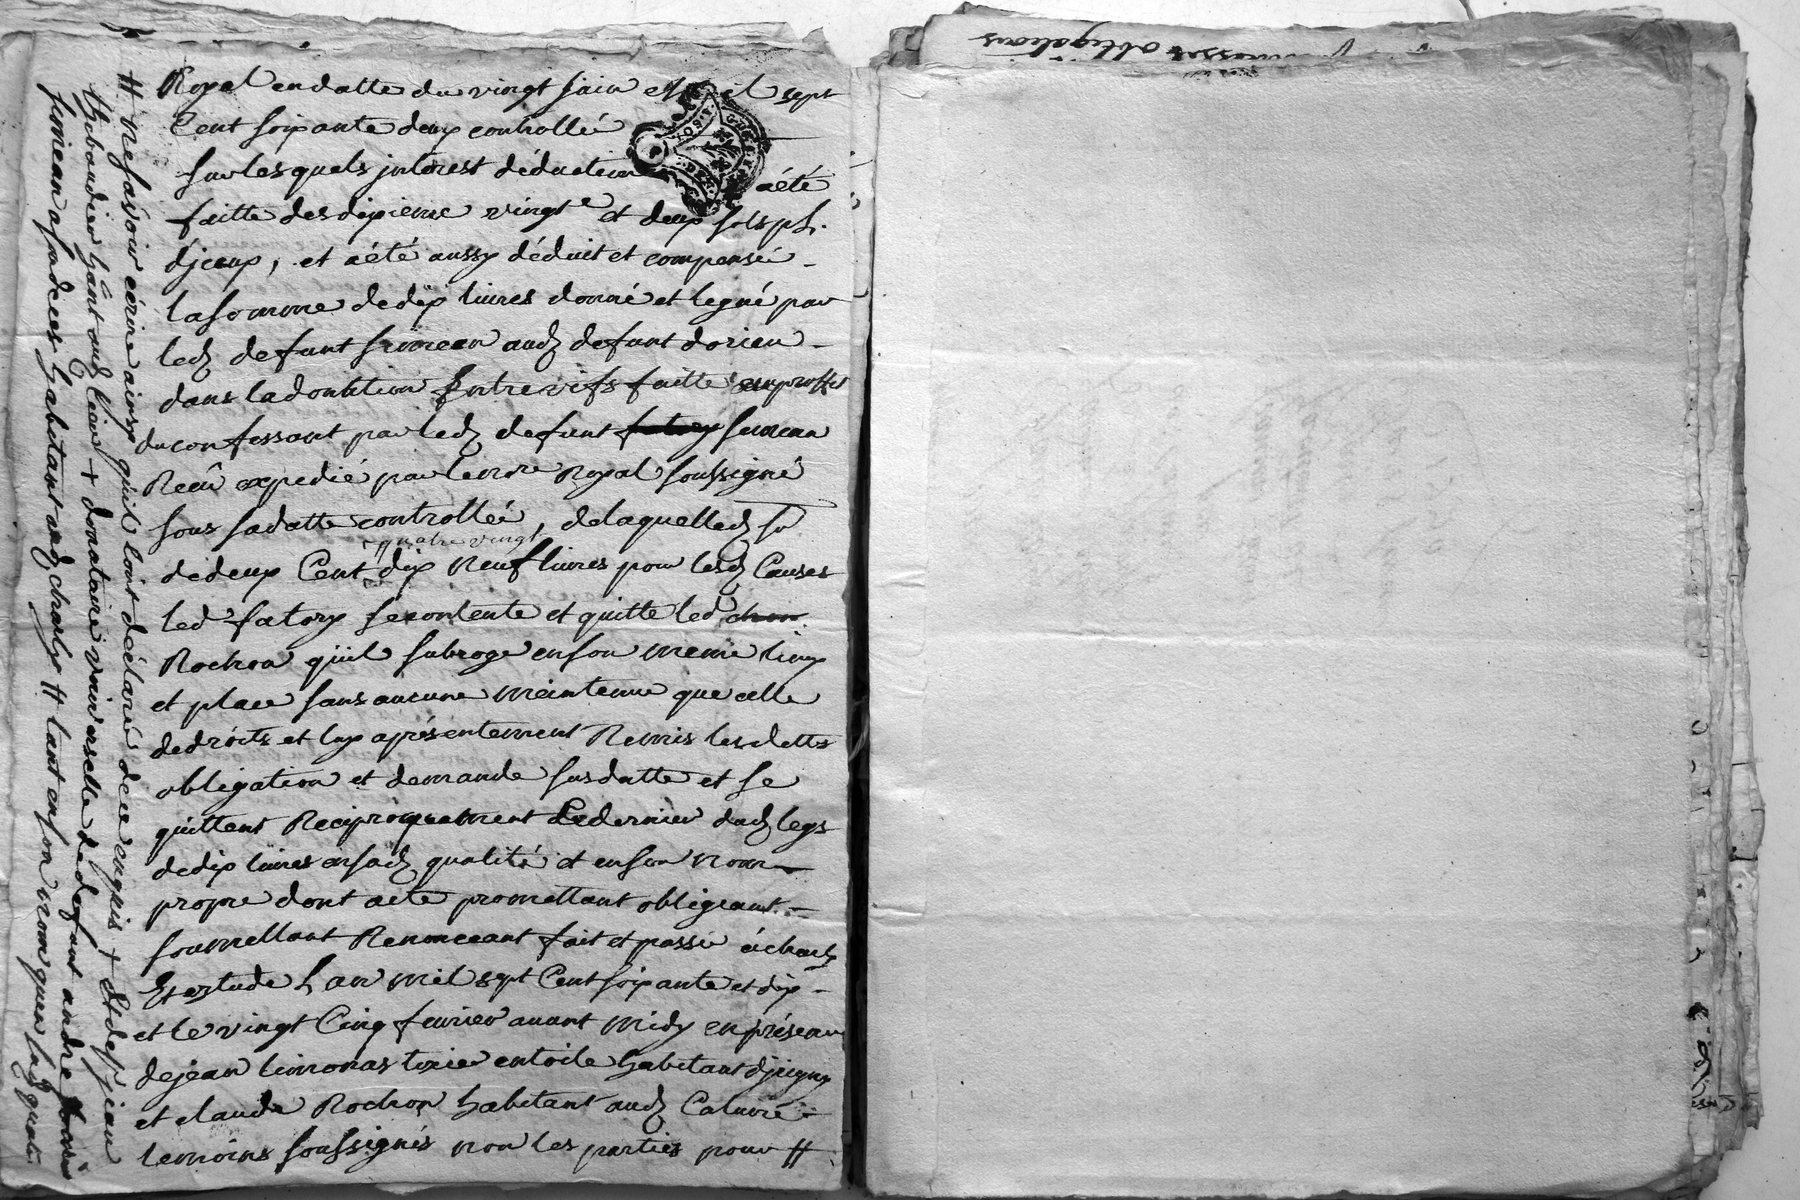 Royal en datte du vingt juin mil sept
Cent soixante deux controllé
sur lesquels jnterest déduction a été
faitte des dixieme vingte et deux sols pL.
djceux, et a été aussy déduit et compensé
la somme de dix livres donné et legué par
led defunt simean aud defunt dorieu
dans la donation Entre vifs faitte au proffit
du confessant par led defunt fatory simean
Reçu expedié par le nore Royal soussigné
sous sa datte controllée, de laquelled so
quatre vingt
de deux Cent dix neuf livres pour lesd Causes
led fatory se contente et quitte led
Rochon qu'il subroge en son meme lieu
et place sans aucune meintenue que celle
de droits et luy a présentement Remis lesdetts
obligation et demande susdatte et se
quittent Reciproquement de dernier dud legs
de dix livres en sad qualité et en son nom
propre dont acte promettant obligeant
soumettant Renonceant fait et passé à charly
Et estude L'an mil sept Cent soixante et dix
et le vingt Cinq fevrier avant midy en présence
de jean limonas tixier en toile habitant djrigny
et claude Rochon habitant aud Caluire
temoins soussignés non les parties pour #
# ne savoir écrire ainsy qu'il l'ont déclaré de ce enquis + Et de jean
thibaudier habitant aud lieu + donataire universelle de defunt andré
simean a son deces habitant aud charly # tant en son nom que en lad qualité
promesses obligations